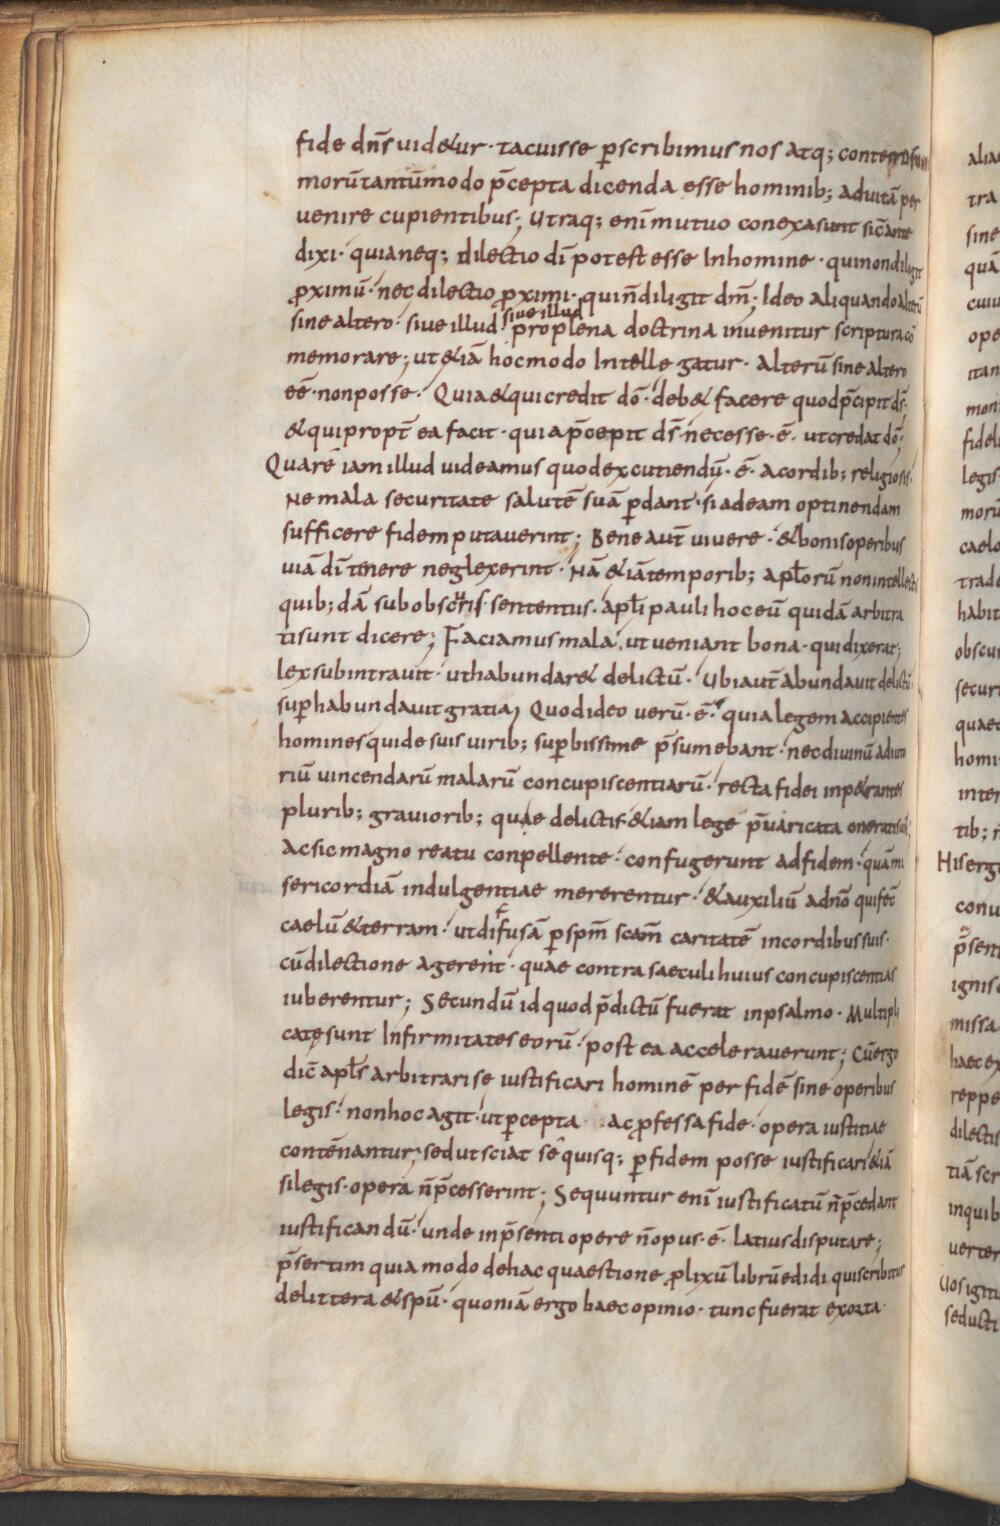 fide dn̄s uidetur · tacuisse p̄scribimus nos atq;
morū tantūmodo p̄cepta dicenda esse hominib; aduitā per
uenire cupientibus; Utraq; eni mutuo conexa sunt sic̄ ante
dixi · quia neq; dilectio dī potest esse In homine · qui non diligit
ꝓximū · nec dilectio ꝓximi · qui n̄ diligit dm̄ · Ideo aliquando alterū
siue illud
sine altero · siue illud pro plena doctrina inuenitur scriptura cō
memorare; ut &iā hoc modo Intellegatur · Alterū sine altero
eē · non posse · Quia & qui credit dō · deb& facere quod p̄cipit ds̄;
& qui propt̄ ea facit · quia p̄cepit ds̄ · necesse · ē · ut credat dō ·
Quare iam illud uideamus quod excutiendū · ē · a cordib; religiosis ·
Ne mala securitate salutē suā p̄dant · si ad eam optinendam
sufficere fidem putauerint; Bene aut̄ uiuere · & bonis operibus
uiā dī tenere neglexerint · Nā & iā temporib; apl̄orū non intellectis
quib; dā sub obscuris sententiis · apl̄i pauli hoc eū quidā arbitra
ti sunt dicere; Faciamus mala · ut ueniant bona · qui dixerat;
lex subintrauit · ut habundar& delictū · Ubi aut̄ abundauit delictū
sup̄habundauit gratia; Quod ideo uerū · ē · quia legem accipientes
homines qui de suis uirib; sup̄bissime p̄sumebant · nec diuinū adiuto
riū uincendarū malarū concupiscentiarū · recta fidei inp&rantes
plurib; grauiorib; quae delictis & iam lege p̄uaricata onerati sunt;
Ac sic magno reatu conpellente · confugerunt ad fidem · quā mi
sericordiā indulgentiae mererentur · & auxiliū a dnō qui fec̄
caelū & terram · ut difusā p̄ sp̄m sc̄am caritatē in cordibus suis ·
cū dilectione agerent · quae contra saeculi huius concupiscentias
iuberentur; Secundū id quod p̄dictū fuerat in psalmo · Multipli
cate sunt Infirmitates eorū · post ea accelerauerunt; Cū ergo
dic̄ apl̄s arbitrari se iustificari hominē per fidē sine operibus
legis · non hoc agit · ut p̄cepta ac ꝓfessa fide · opera iustitiae
contēnantur · sed ut sciat se quisq; p̄ fidem posse iustificari &iā
si legis · opera n̄ p̄cesserint; Sequuntur eni iustificatū n̄ p̄cedant
iustificandū · unde in p̄senti opere n̄ opus · ē · latius disputare;
p̄sertim quia modo de hac quaestione ꝓlixū librū edidi qui scribitur
de littera & spū · quoniā ergo haec opinio · tunc fuerat exorta ·